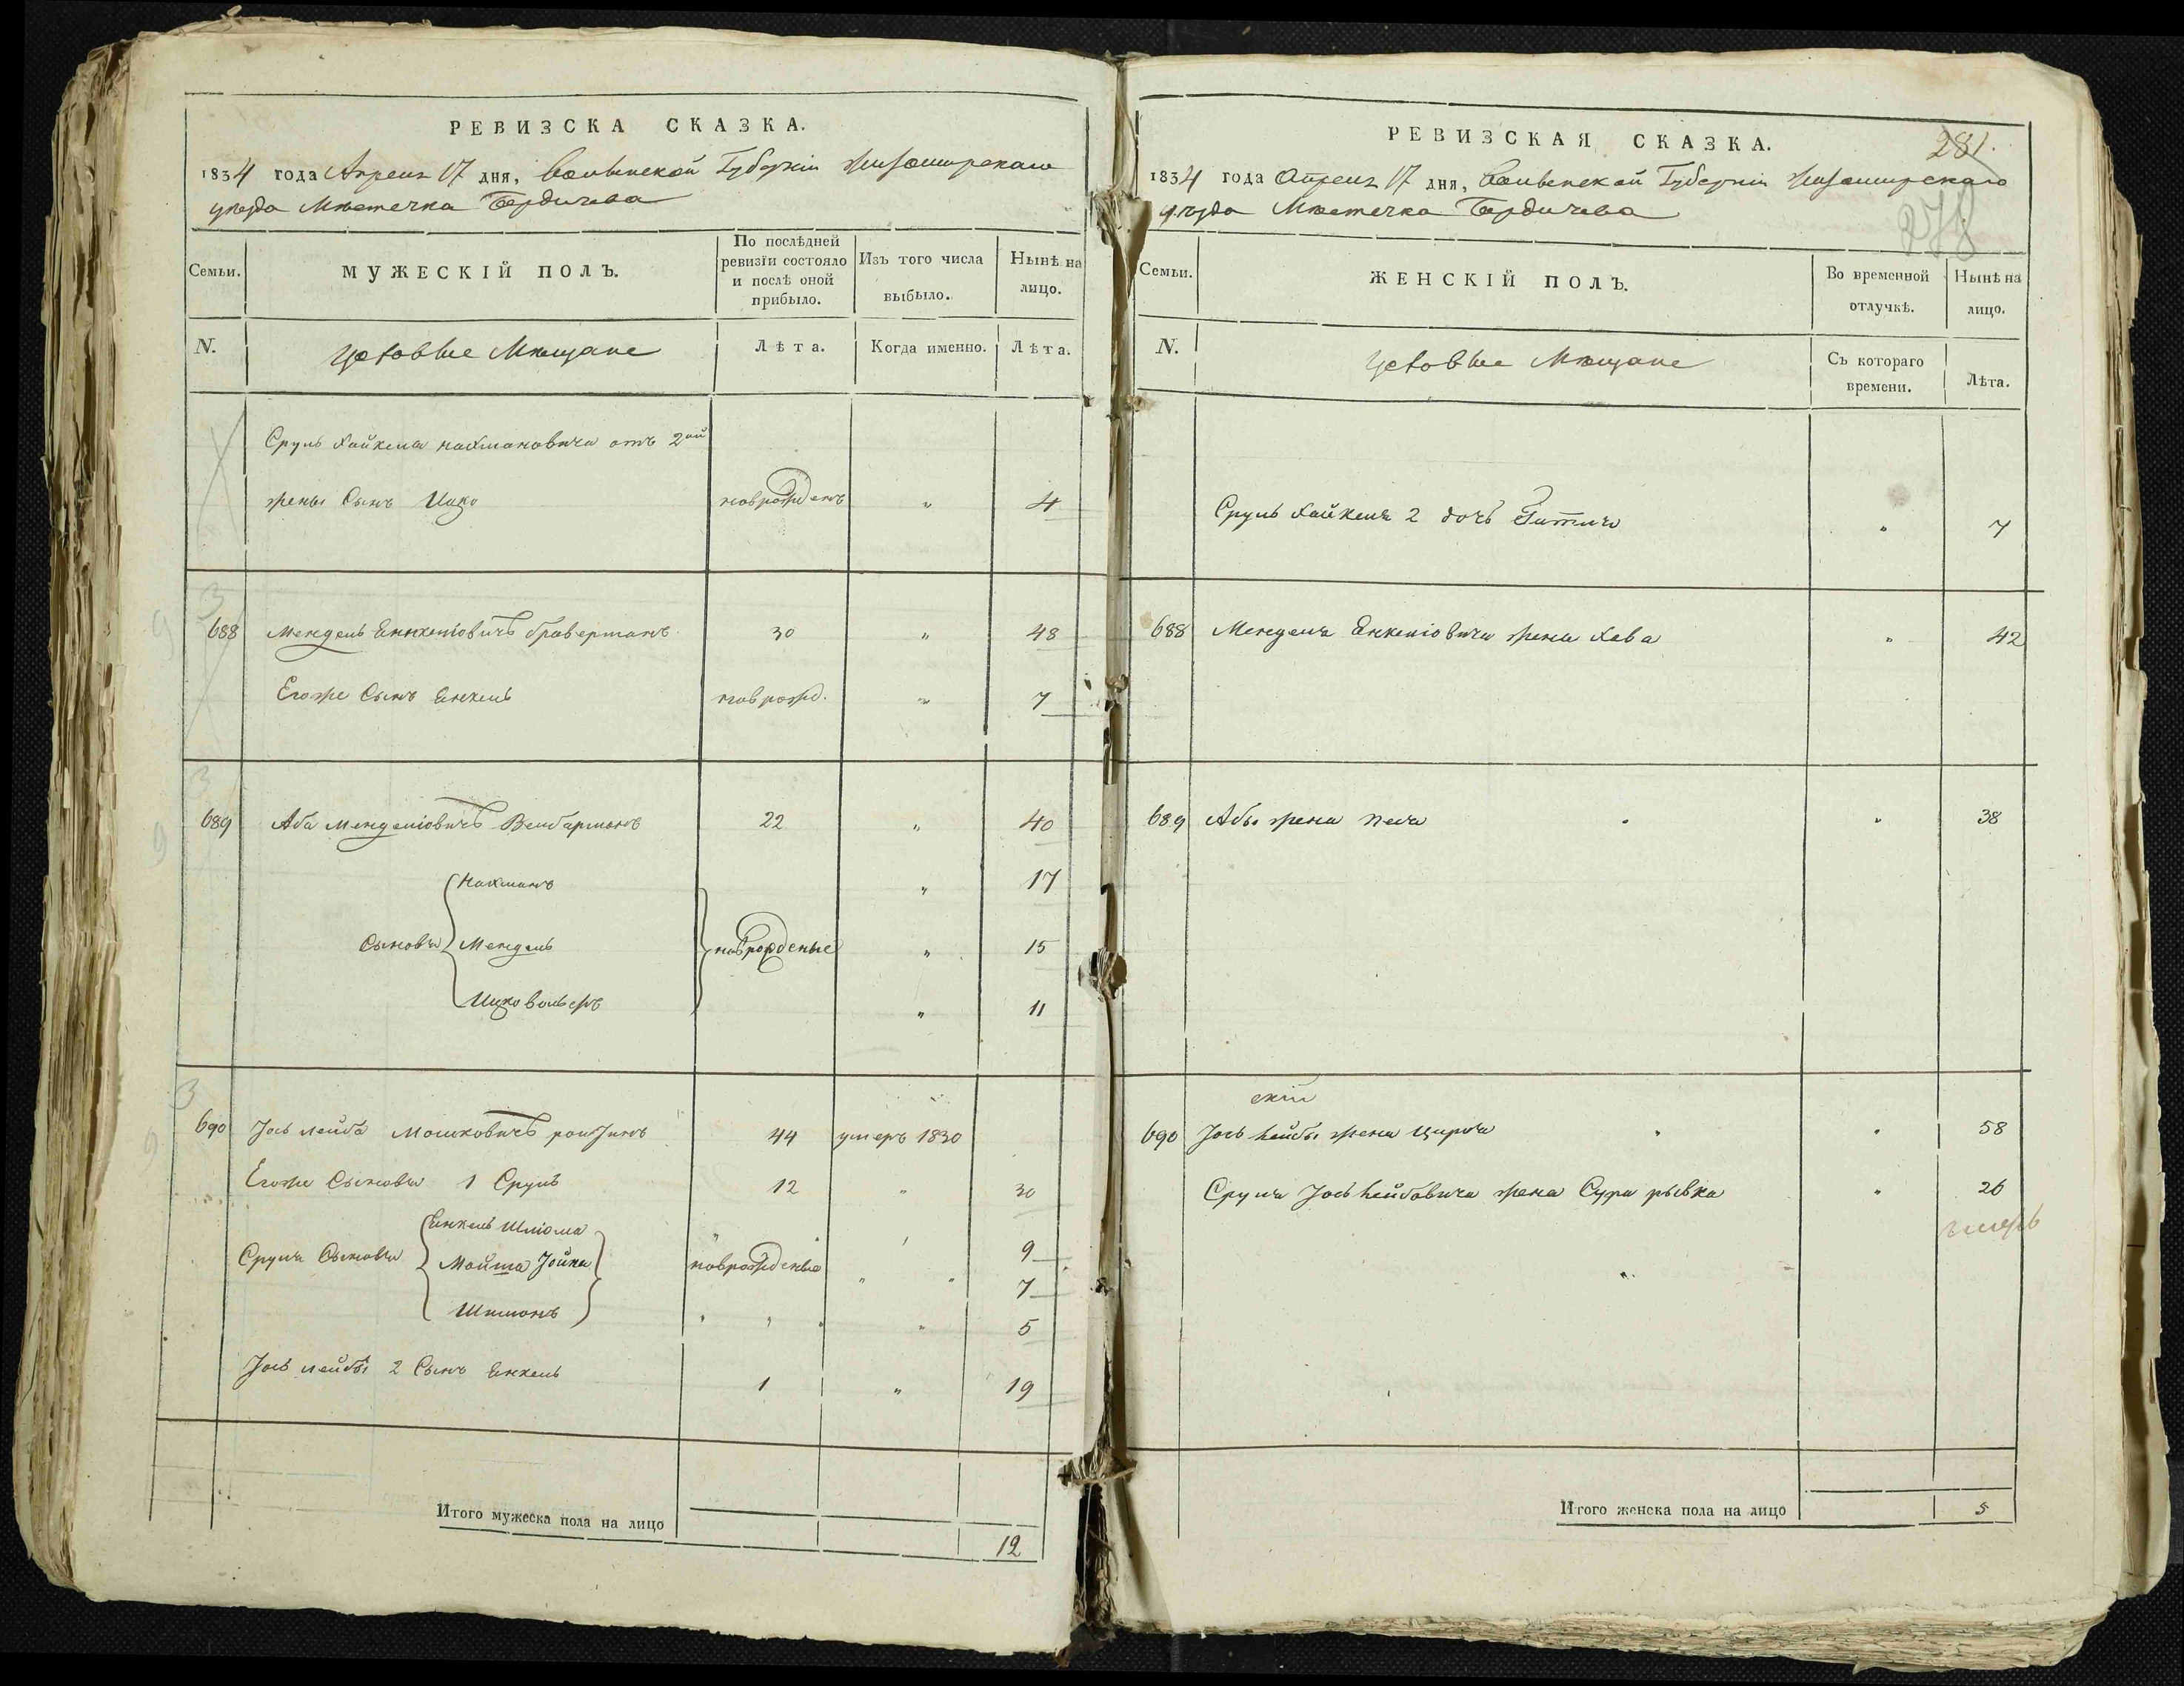 РЕВИЗСКА СКАЗКА.
1834 года Апреля 17 дня, Волынской Губернiи Житомирскаго
уезда Мѣстечка Бердичева
Семьи.
МУЖЕСКIЙ ПОЛЪ.
По послѣдней
ревизiи состояло
и послѣ оной
прибыло.
Изъ того числа
выбыло.
Нынѣ на
лицо.
N.
Цеховые Мѣщане
Лѣта.
Когда именно.
Лѣта.
Сруль Хайкеля Нахмановича отъ 2ой
жены Сынъ Ицко новрожденъ " 4
688 Мендель Енкелiовичъ браверманъ 30 " 48
Егоже Сынъ Енкель новрожд. " 7
689 Аба Менделiовичъ 22 " 40
Нахманъ " 17
Сыновья Мендель новрожденые " 15
Ицко вольфъ " 11
690 Iось лейба Мошковичъ ройзинъ 44 умеръ 1830
Егоже Сыновья 1 Сруль 12 " 30
Енкель Шлiома " 9
Сруля Сыновья Мойша Iойна новрожденые " 7
Шимонъ " 5
Iось лейбы 2 Сынъ Енкель 1 " 19
Итого мужеска пола на лицо
12
РЕВИЗСКАЯ СКАЗКА.
281.
278
1834 года Апреля 17 дня, Волынской Губернiи Житомирскаго
уезда Мѣстечка Бердичева
Семьи.
ЖЕНСКIЙ ПОЛЪ.
Во временной
отлучкѣ.
Нынѣ на
лицо.
N.
Цеховые Мѣщане
Съ котораго
времени.
Лѣта.
Сруль Хайкеля 2 дочь Гитля " 7
688 Менделя Енкелiовича жена Хава " 42
689 Абы жена Песя " 38
690 Iось лейбы жена Цирля " 58
Сруля Iось лейбовича жена Сура рывка " 26
Итого женска пола на лицо
5